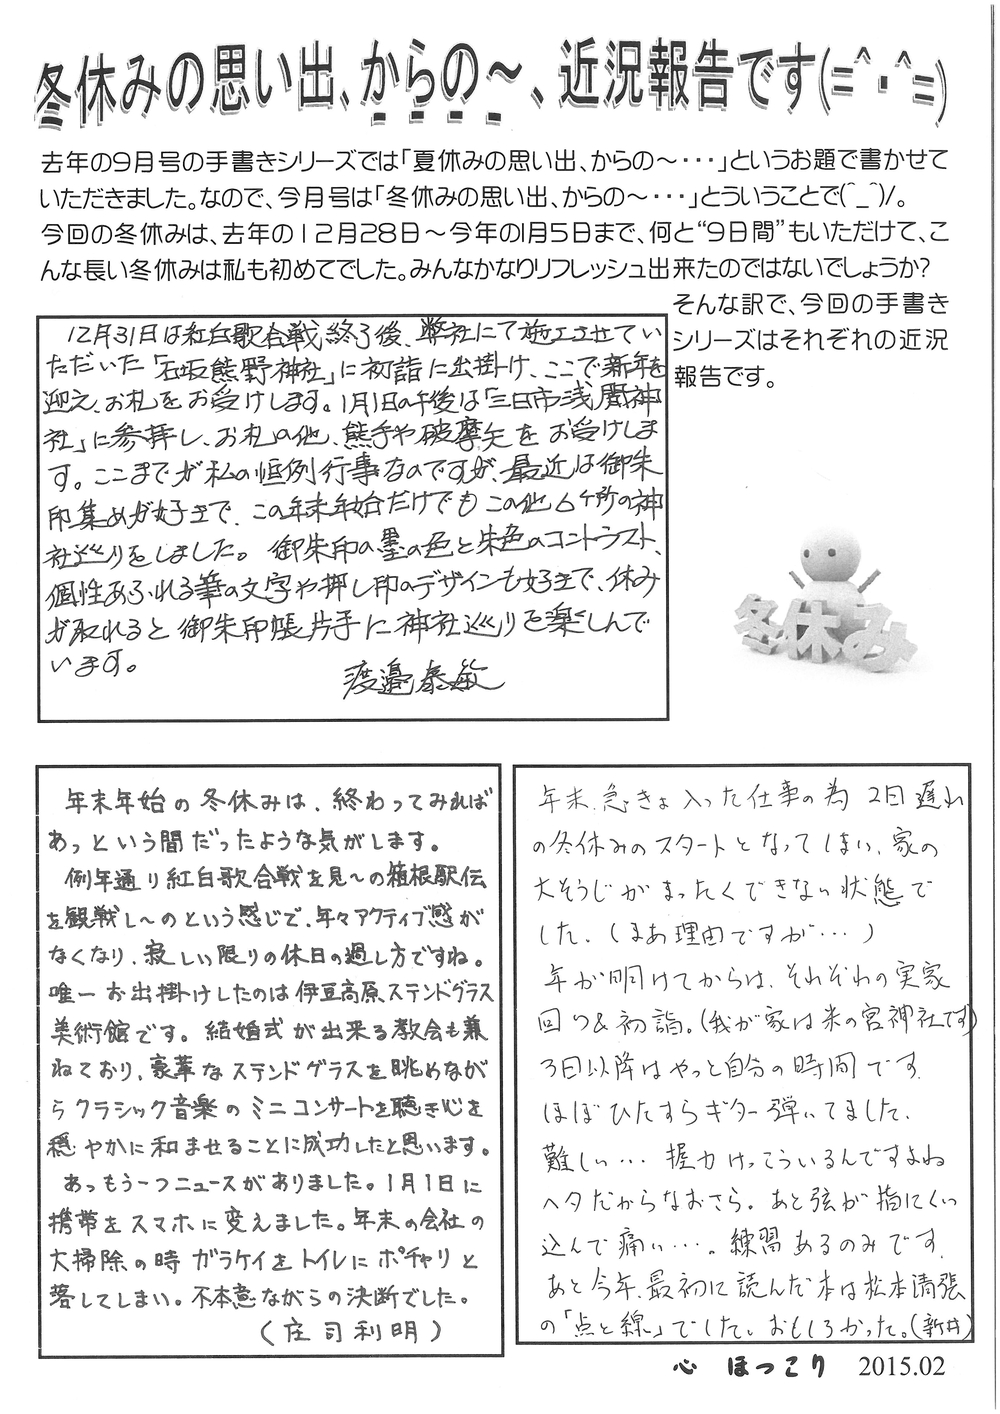 冬休みの思い出、からの～、近況報告です(=^・^=)
去年の９月号の手書きシリーズでは「夏休みの思い出、からの～・・・」というお題で書かせて
いただきました。なので、今月号は「冬休みの思い出、からの～・・・」とういうことで(^_^)/。
今回の冬休みは、去年の１２月２８日～今年の１月５日まで、何と“９日間”もいただけて、こ
んな長い冬休みは私も初めてでした。みんなかなりリフレッシュ出来たのではないでしょうか？
そんな訳で、今回の手書き
シリーズはそれぞれの近況
報告です。
12月31日は紅白歌合戦終了後、弊社にて施工させてい
ただいた「石坂熊野神社」に初詣に出掛け、ここで新年を
迎え、お札をお受けします。1月1日の午後は「三日市浅間神
社」に参拝し、お札の他、熊手や破摩矢をお受けしま
す。ここまでが私の恒例行事なのですが、最近は御朱
印集めが好きで、この年末年始だけでもこの他6ヶ所の神
社巡りをしました。御朱印の墨の色と朱色のコントラスト、
個性あふれる筆の文字や押し印のデザインも好きで、休み
が取れると御朱印帳片手に神社巡りを楽しんで
います。
渡邉泰敏
冬休み
年末年始の冬休みは、終わってみれば
あっという間だったような気がします。
例年通り紅白歌合戦を見～の箱根駅伝
を観戦し～のという感じで、年々アクティブ感が
なくなり、寂しい限りの休日の過し方ですね。
唯一お出掛けしたのは伊豆高原ステンドグラス
美術館です。結婚式が出来る教会も兼
ねており、豪華なステンドグラスを眺めなが
らクラシック音楽のミニコンサートを聴き心を
穏やかに和ませることに成功したと思います。
あっもう一つニュースがありました。1月1日に
携帯をスマホに変えました。年末の会社の
大掃除の時ガラケイをトイレにポチャリと
落してしまい。不本意ながらの決断でした。
（庄司利明）
年末、急きょ入った仕事の為2日遅れ
の冬休みのスタートとなってしまい、家の
大そうじがまったくできない状態で
した。（まあ理由ですが…）
年が明けてからは、それぞれの実家
回り&初詣。（我が家は米の宮神社です）
3日以降はやっと自分の時間です。
ほぼひたすらギター弾いてました、
難しい… 握力けっこういるんですよね
ヘタだからなおさら。あと弦が指にくい
込んで痛い…。練習あるのみです。
あと今年、最初に読んだ本は松本清張
の「点と線」でした。おもしろかった。（新井）
心 ほっこり 2015.02